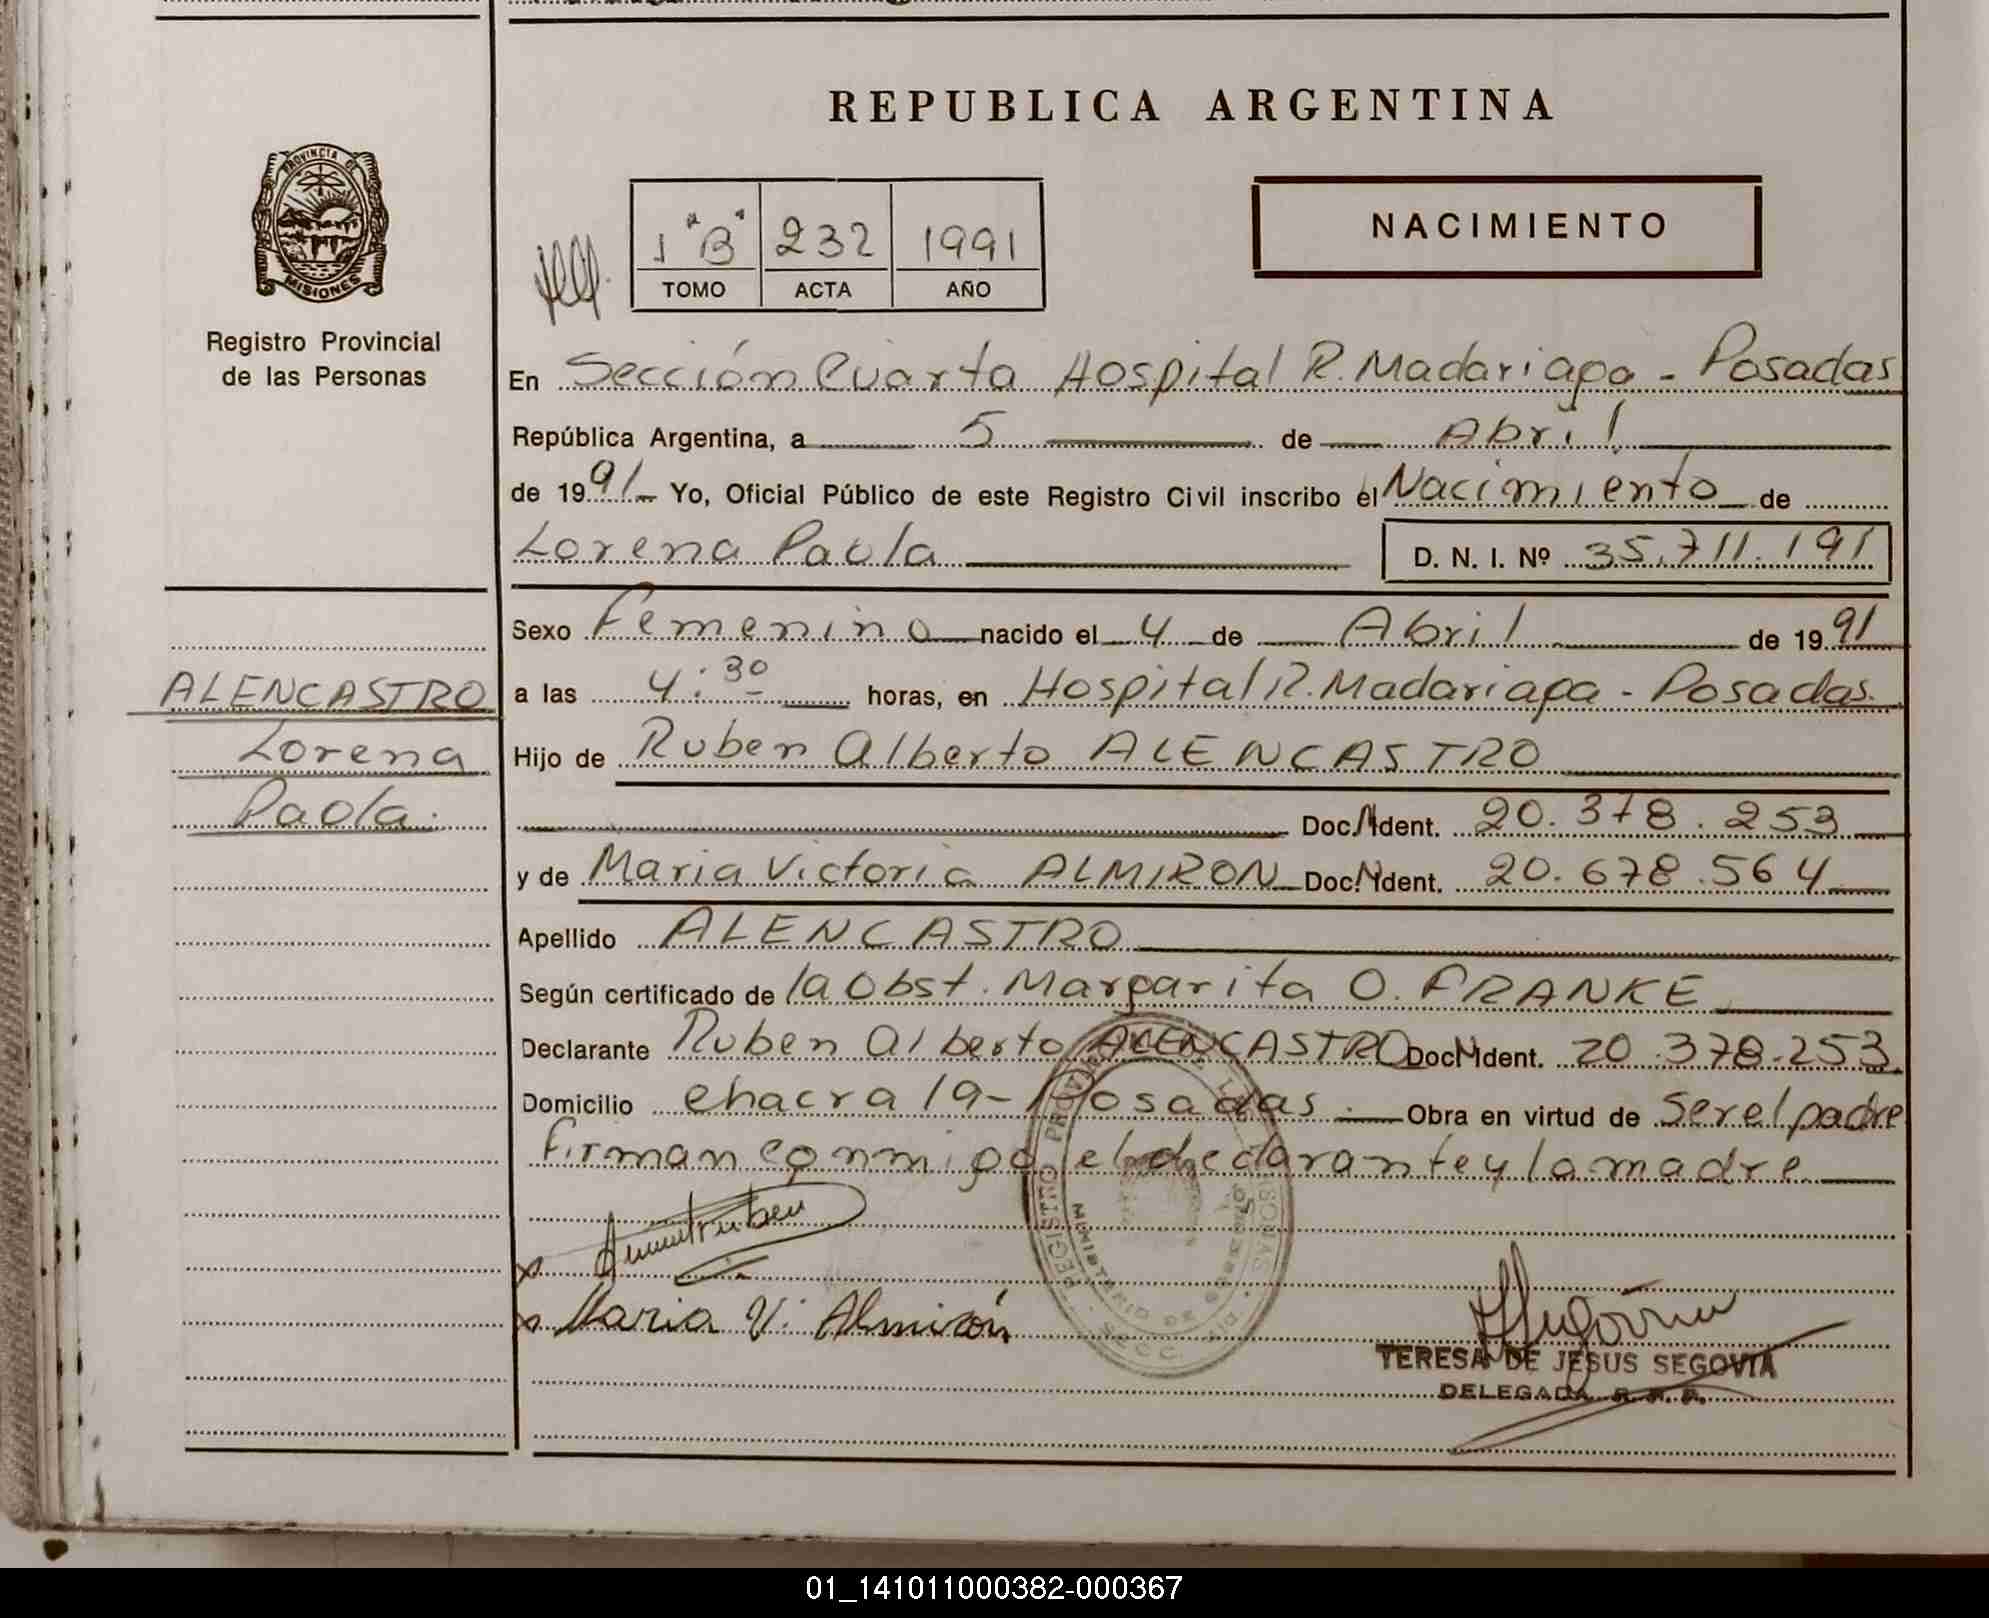 REPUBLICA ARGENTINA
PROVINCIA DE
MISIONES
Registro Provincial
de las Personas
1 "B" 232 1991
TOMO ACTA AÑO
NACIMIENTO
En Sección Cuarta Hospital R. Madariaga - Posadas
República Argentina, a 5 de Abril
de 1991 - Yo, Oficial Público de este Registro Civil inscribo el Nacimiento de
Lorena Paola D. N. I. Nº 35.711.191
Sexo Femenino nacido el 4 de Abril de 1991
ALENCASTRO
Lorena
Paola.
a las 4:30 horas, en Hospital R. Madariaga - Posadas.
Hijo de Ruben Alberto ALENCASTRO
Doc. Ident. 20.378.253
y de Maria Victoria ALMIRON Doc. Ident. 20.678.564
Apellido ALENCASTRO
Según certificado de la Obst. Margarita O. FRANKE
Declarante Ruben Alberto ALENCASTRO Doc. Ident. 20.378.253
Domicilio chacra 19 - Posadas. Obra en virtud de Ser el padre
firman conmigo el declarante y la madre
x
x Maria V. Almirón
REGISTRO PROVINCIAL DE LAS PERSONAS
MINISTERIO DE
SECC.
TERESA DE JESUS SEGOVIA
DELEGADA R. P. P.
01_141011000382-000367